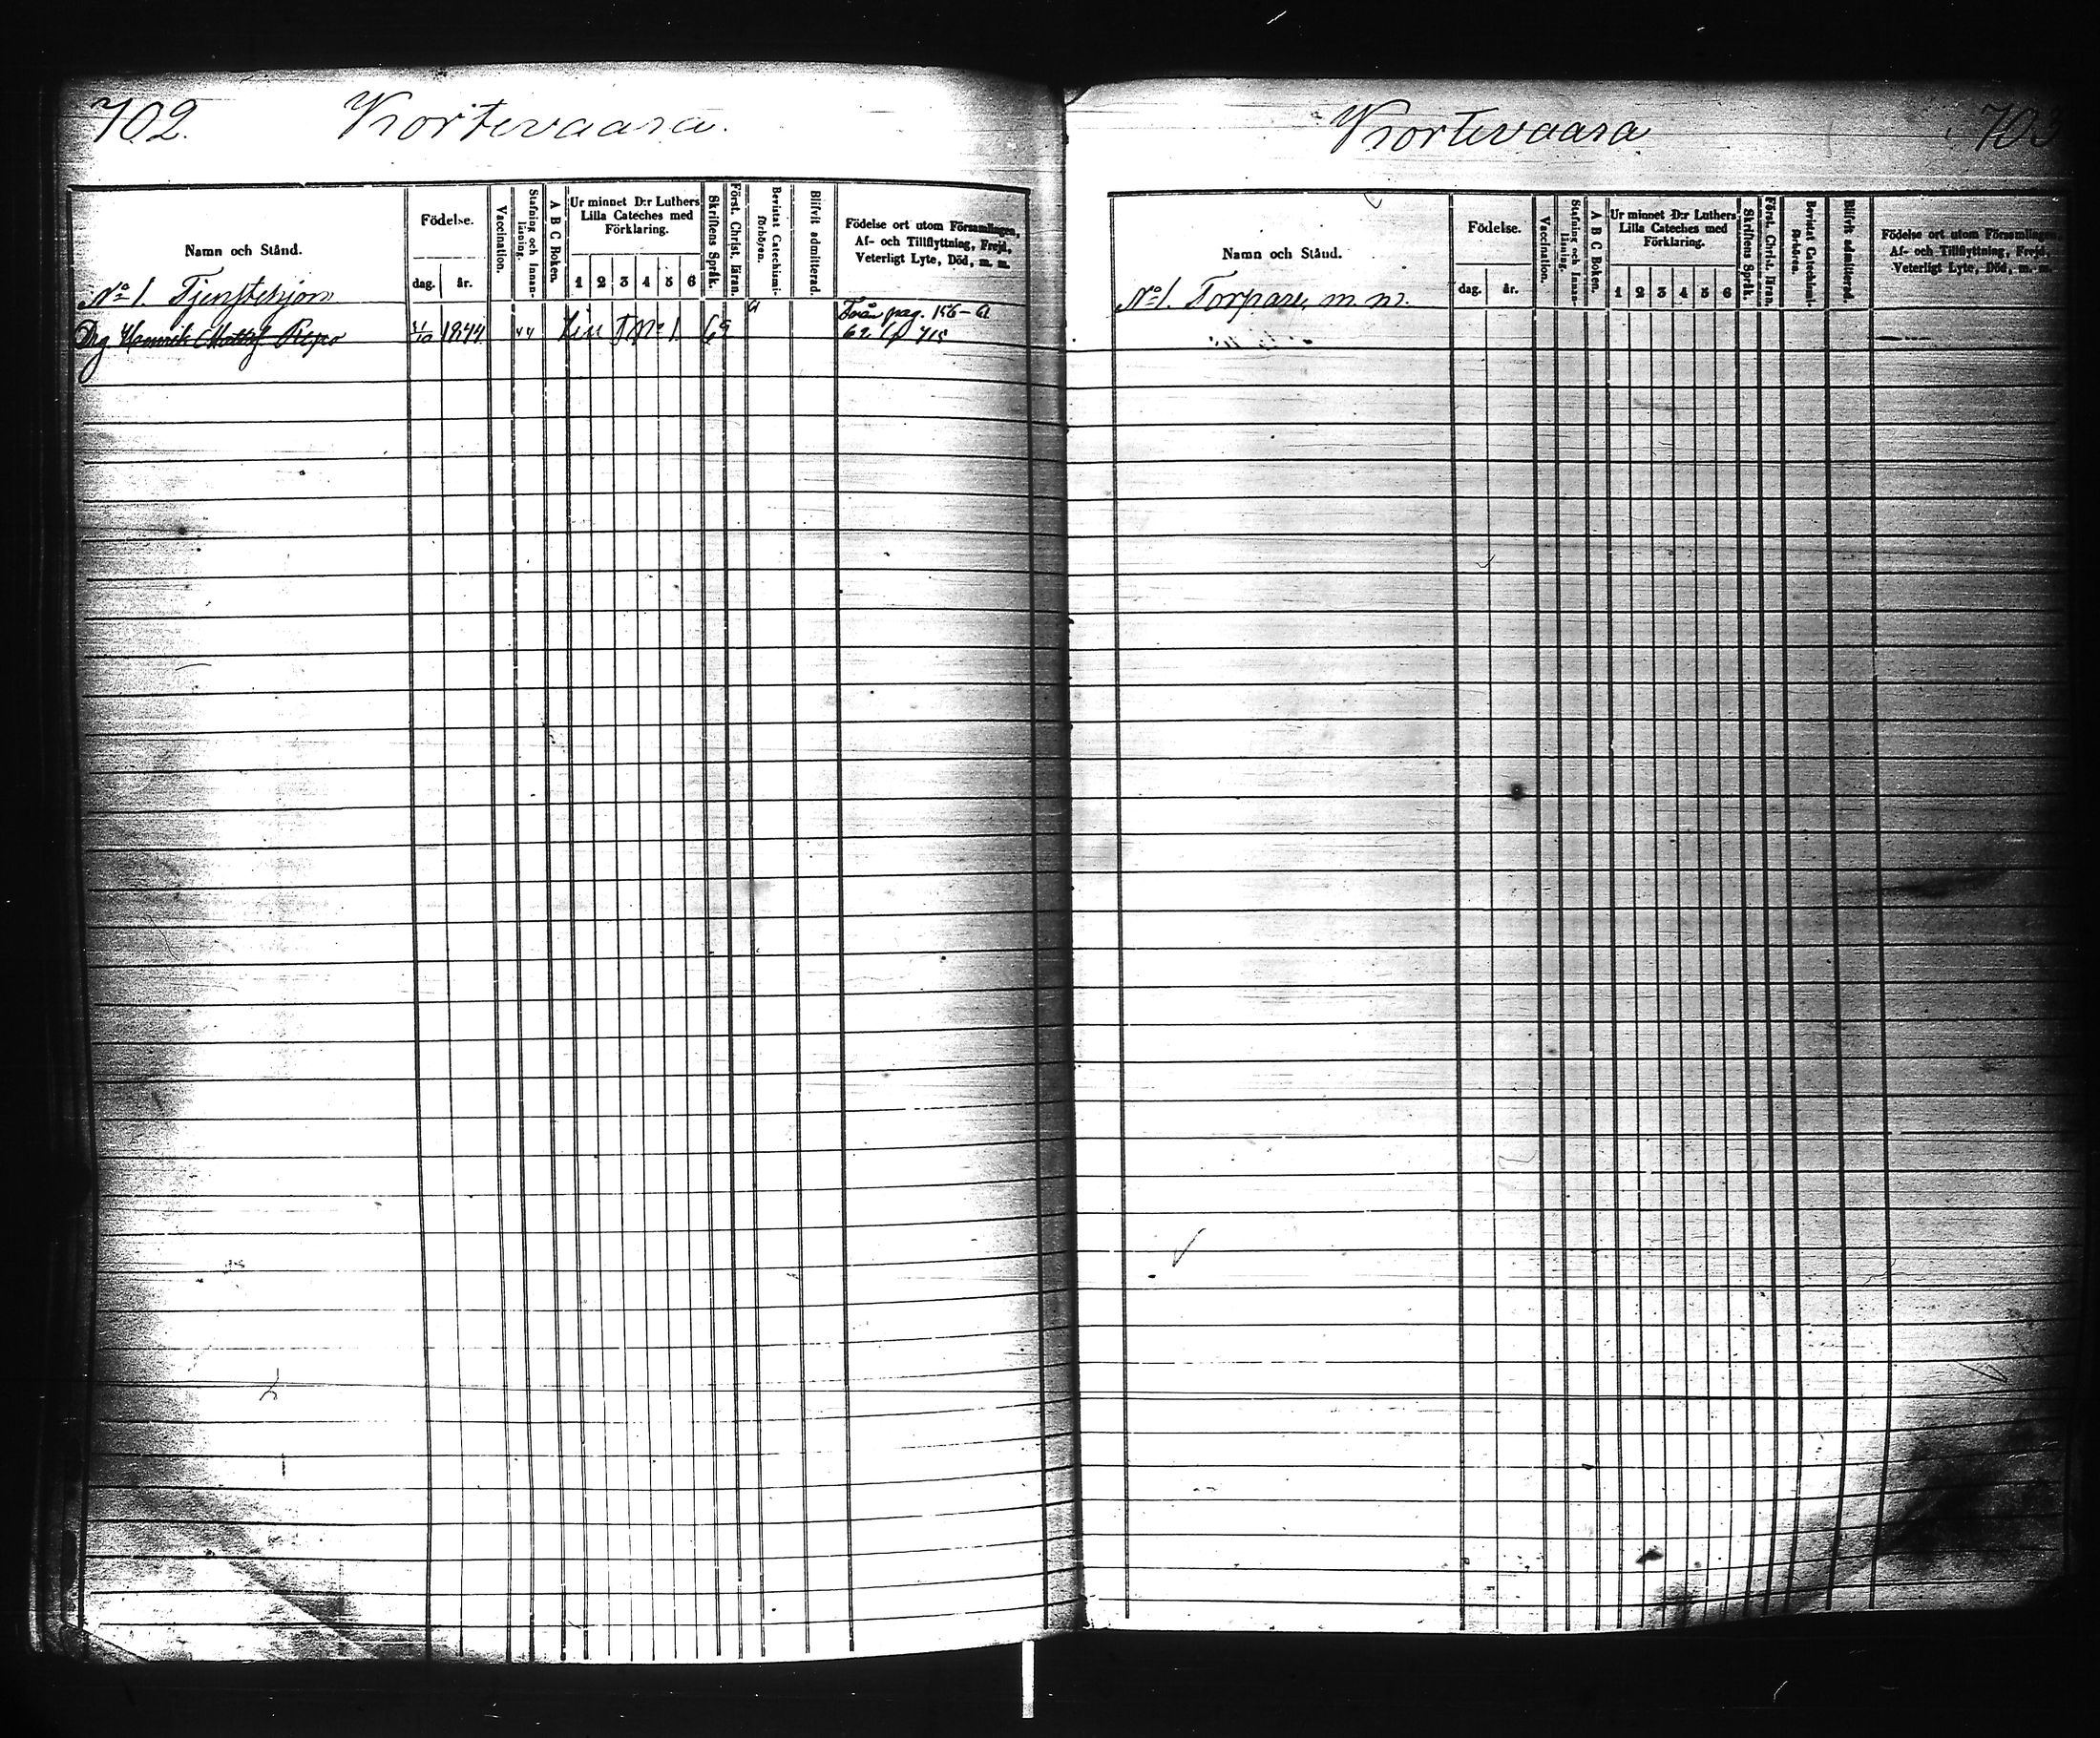 702. Kortevaara.
Namn och Stånd.
Födelse.
dag. år.
Vaccination.
Stafning och Innan-
läsning.
A B C Boken.
Ur minnet D:r Luthers
Lilla Cateches med
Förklaring.
1 2 3 4 5 6
Skriftens Språk.
Först. Christ. läran.
Bevistat Catechismi-
förhören.
Blifvit admitterad.
Födelse ort utom Församlingen,
Af- och Tillflyttning, Frejd,
Veterligt Lyte, Död, m. m.
No 1. Tjenstehjon
Drg Henrik Mattsf Repo 1844
Från pag. 156 - 61
62 715
Kortevaara 703
Namn och Stånd.
Födelse.
dag. år.
Vaccination.
Stafning och Innan-
läsning.
A B C Boken.
Ur minnet D:r Luthers
Lilla Cateches med
Förklaring.
1 2 3 4 5 6
Skriftens Språk.
Först. Christ. läran.
Bevistat Catechismi-
förhören.
Blifvit admitterad.
Födelse ort utom Församlingen,
Af- och Tillflyttning, Frejd,
Veterligt Lyte, Död, m. m.
No 1. Torpare, m m.